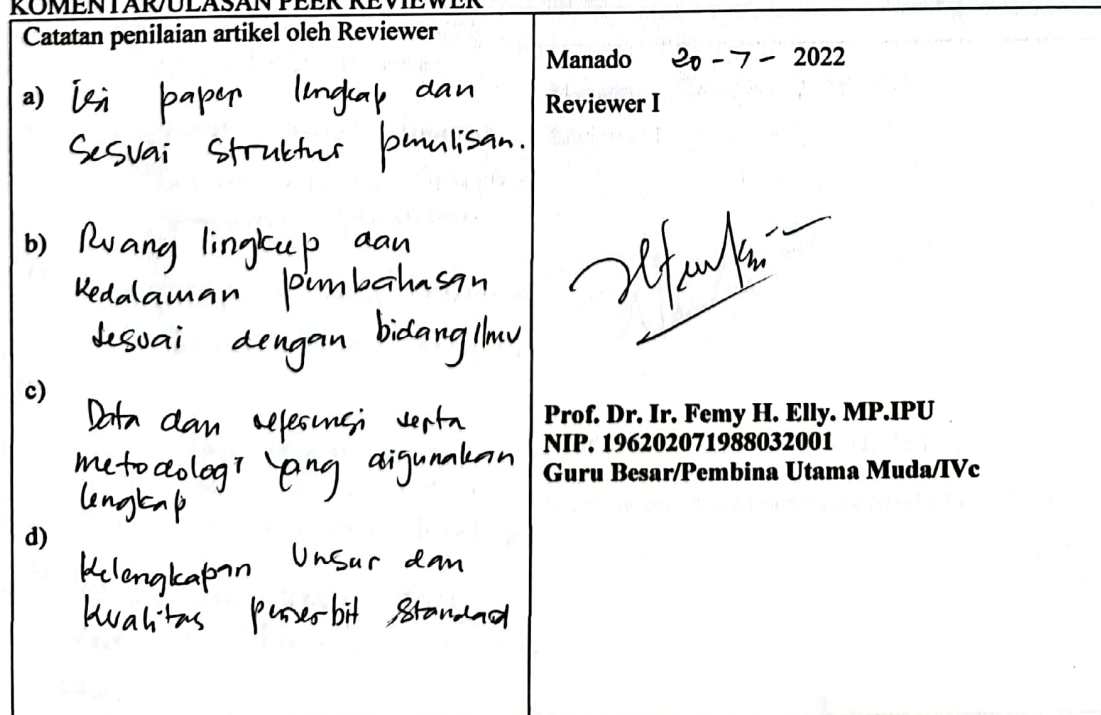 KOMENTAR/ULASAN PEER REVIEWER
Catatan penilaian artikel oleh Reviewer
a) isi paper lengkap dan
Sesuai struktur penulisan.
b) Ruang lingkup dan
Kedalaman pembahasan
sesuai dengan bidang ilmu
c) Data dan referensi serta
metodologi yang digunakan
lengkap
d) Kelengkapan Unsur dan
kualitas penerbit Standard
Manado 20 - 7 - 2022
Reviewer I
Prof. Dr. Ir. Femy H. Elly. MP.IPU
NIP. 196202071988032001
Guru Besar/Pembina Utama Muda/IVc